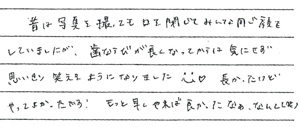 昔は写真を撮っても口を閉じてみんな同じ顔を
していましたが、歯ならびが良くなってからは気にせず
思いきり笑えるようになりました
長かったけど
やってよかったかも! もっと早くやれば良かったなぁ、なんて(笑)